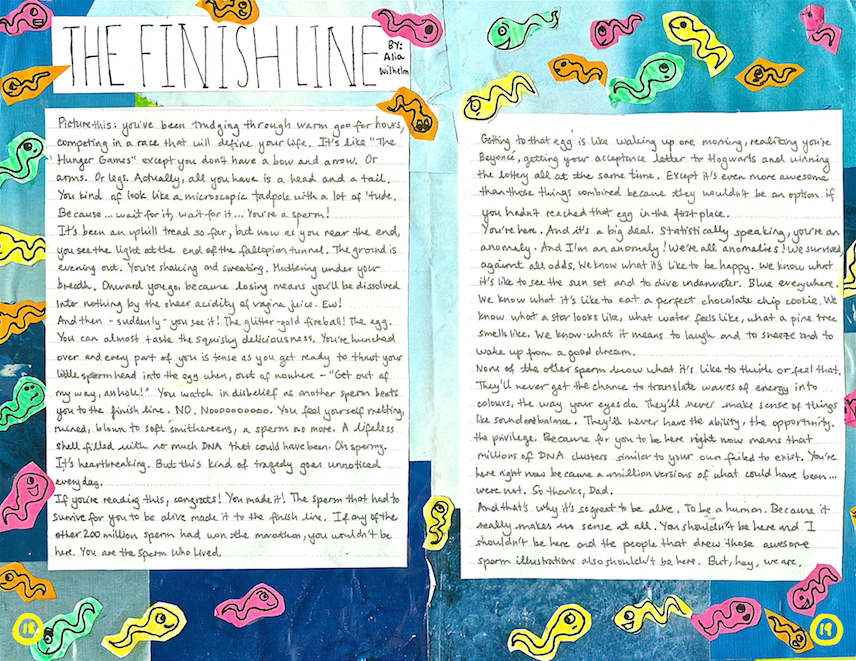 THE FINISH LINE
BY:
Alia
Wilhelm
Picture this: you've been trudging through warm goo for hours,
competing in a race that will define your life. It's like "The
Hunger Games" except you don't have a bow and arrow. Or
arms. Or legs. Actually, all you have is a head and a tail.
You kind of look like a microscopic tadpole with a lot of 'tude.
Because... wait for it, wait for it... You're a sperm!
It's been an uphill tread so far, but now as you near the end,
you see the light at the end of the fallopian tunnel. The ground is
evening out. You're shaking and sweating. Muttering under your
breath. Onward you go, because losing means you'll be dissolved
into nothing by the sheer acidity of vagina juice. Ew!
And then - suddenly - you see it! The glitter-gold fireball! The egg.
You can almost taste the squishy deliciousness. You're hunched
over and every part of you is tense as you get ready to thrust your
little sperm head into the egg when, out of nowhere - "Get out of
my way, asshole!" You watch in disbelief as another sperm beats
you to the finish line. NO. Nooooooooooo. You feel yourself melting,
ruined, blown to soft smithereens, a sperm no more. A lifeless
shell filled with so much DNA that could have been. Oh spermy.
It's heartbreaking. But this kind of tragedy goes unnoticed
every day.
If you're reading this, congrats! You made it! The sperm that had to
survive for you to be alive made it to the finish line. If any of the
other 200 million sperm had won the marathon, you wouldn't be
here. You are the Sperm Who Lived.
18
Getting to that egg is like waking up one morning, realizing you're
Beyoncé, getting your acceptance letter to Hogwarts and winning
the lottery all at the same time. Except it's even more awesome
than those things combined because they wouldn't be an option if
you hadn't reached that egg in the first place.
You're here. And it's a big deal. Statistically speaking, you're an
anomaly. And I'm an anomaly! We're all anomalies! We survived
against all odds. We know what it's like to be happy. We know what
it's like to see the sun set and to dive underwater. Blue everywhere.
We know what it's like to eat a perfect chocolate chip cookie. We
know what a star looks like, what water feels like, what a pine tree
smells like. We know what it means to laugh and to sneeze and to
wake up from a good dream.
None of the other sperm know what it's like to think or feel that.
They'll never get the chance to translate waves of energy into
colours, the way your eyes do. They'll never make sense of things
like sound and balance. They'll never have the ability, the opportunity,
the privilege. Because for you to be here right now means that
millions of DNA clusters similar to your own failed to exist. You're
here right now because a million versions of what could have been...
were not. So thanks, Dad.
And that's why it's so great to be alive. To be a human. Because it
really makes no sense at all. You shouldn't be here and I
shouldn't be here and the people that drew those awesome
sperm illustrations also shouldn't be here. But, hey, we are.
19